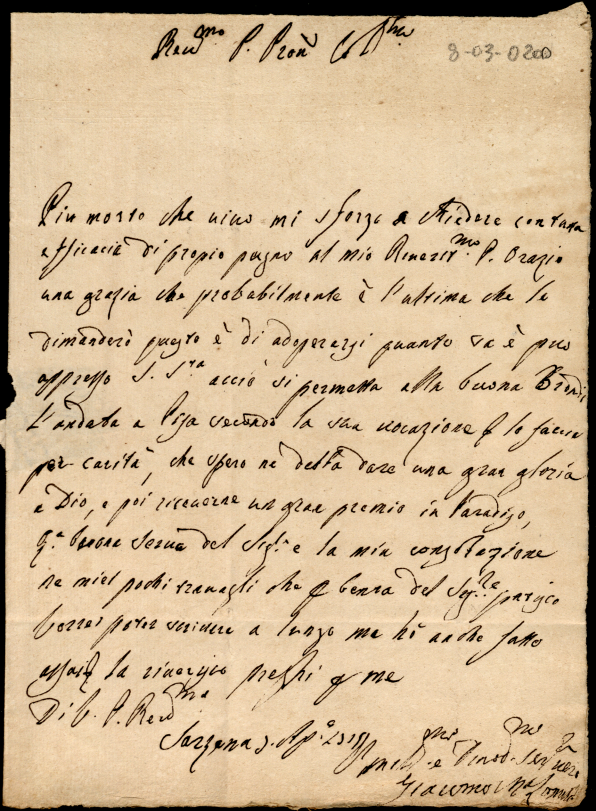 Rev.mo P. Pron
8-03-0200
Piu morto che vivo mi sforzo a chiedere con tutta
efficacia di proprio pugno al mio Reverit.mo P. Orazio
una grazia che probabilmente è l'ultima che le
dimanderò questo è di adoperarsi quanto sa è puo
appresso S. S.ta acciò si permetta alla buona
L'andata a Pisa secondo la sua vocazione lo faccia
per carità, che spero ne debba dare una gran gloria
a Dio, e poi riceverne un gran premio in Paradiso,
Q.a buona serva del Sig.e e la mia consolazione
ne miei pochi travagli che p bontà del Sig.re patisco
Vorrei poter scrivere a lungo ma hò anche fatto
assai la riverisco preghi p me
Di V. P. Rev.ma
Sarzana Ap.e
Giacomo